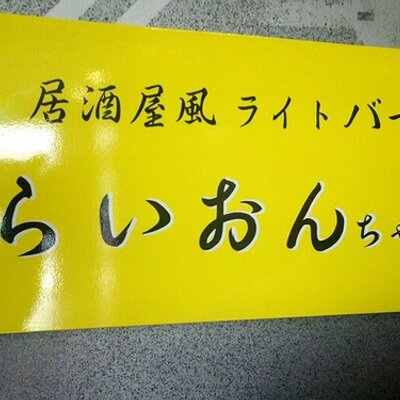 居酒屋風 ライトバー
らいおんちゃ